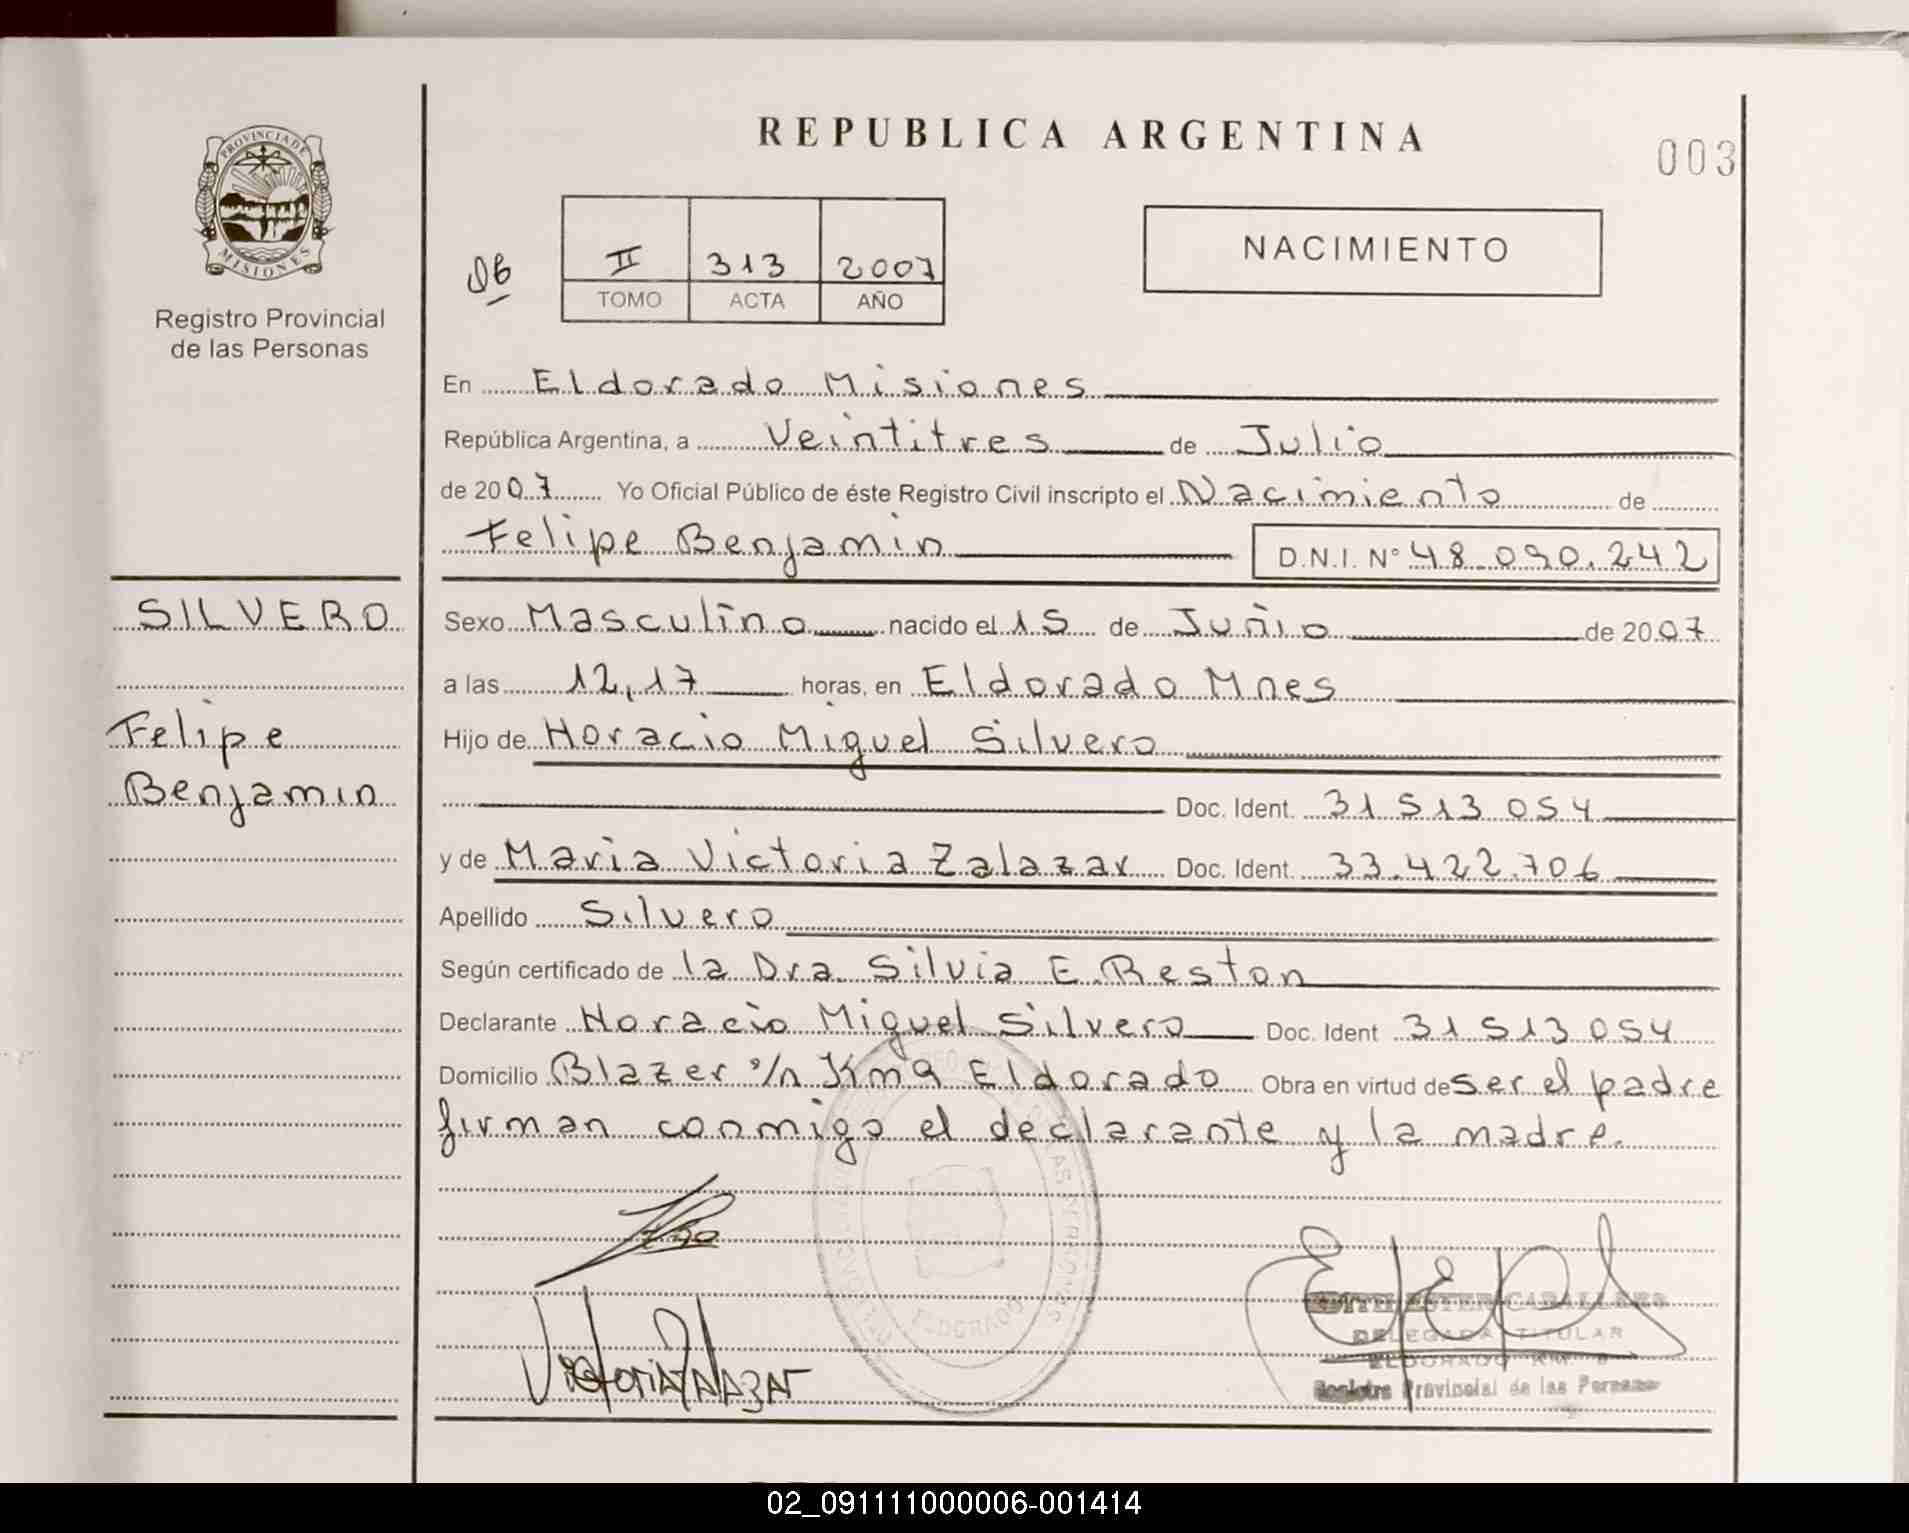 REPUBLICA ARGENTINA
003
PROVINCIA DE
MISIONES
Registro Provincial
de las Personas
II 313 2007
TOMO ACTA AÑO
NACIMIENTO
En Eldorado Misiones
República Argentina, a Veintitres de Julio
de 2007 Yo Oficial Público de éste Registro Civil inscripto el Nacimiento de
Felipe Benjamin D.N.I. Nº 48.090.242
SILVERO
Felipe
Benjamin
Sexo Masculino nacido el 15 de Junio de 2007
a las 12,17 horas, en Eldorado Mnes
Hijo de Horacio Miguel Silvero
Doc. Ident. 31 513 054
y de Maria Victoria Zalazar Doc. Ident. 33.422.706
Apellido Silvero
Según certificado de la Dra. Silvia E. Reston
Declarante Horacio Miguel Silvero Doc. Ident 31 513 054
Domicilio Blazer s/n Km 9 Eldorado Obra en virtud de ser el padre
firman conmigo el declarante y la madre.
ELDORADO
Victoria Zalazar
EDITH ESTER CABALLERO
DELEGADA TITULAR
ELDORADO KM
Registro Provincial de las Personas
02_091111000006-001414